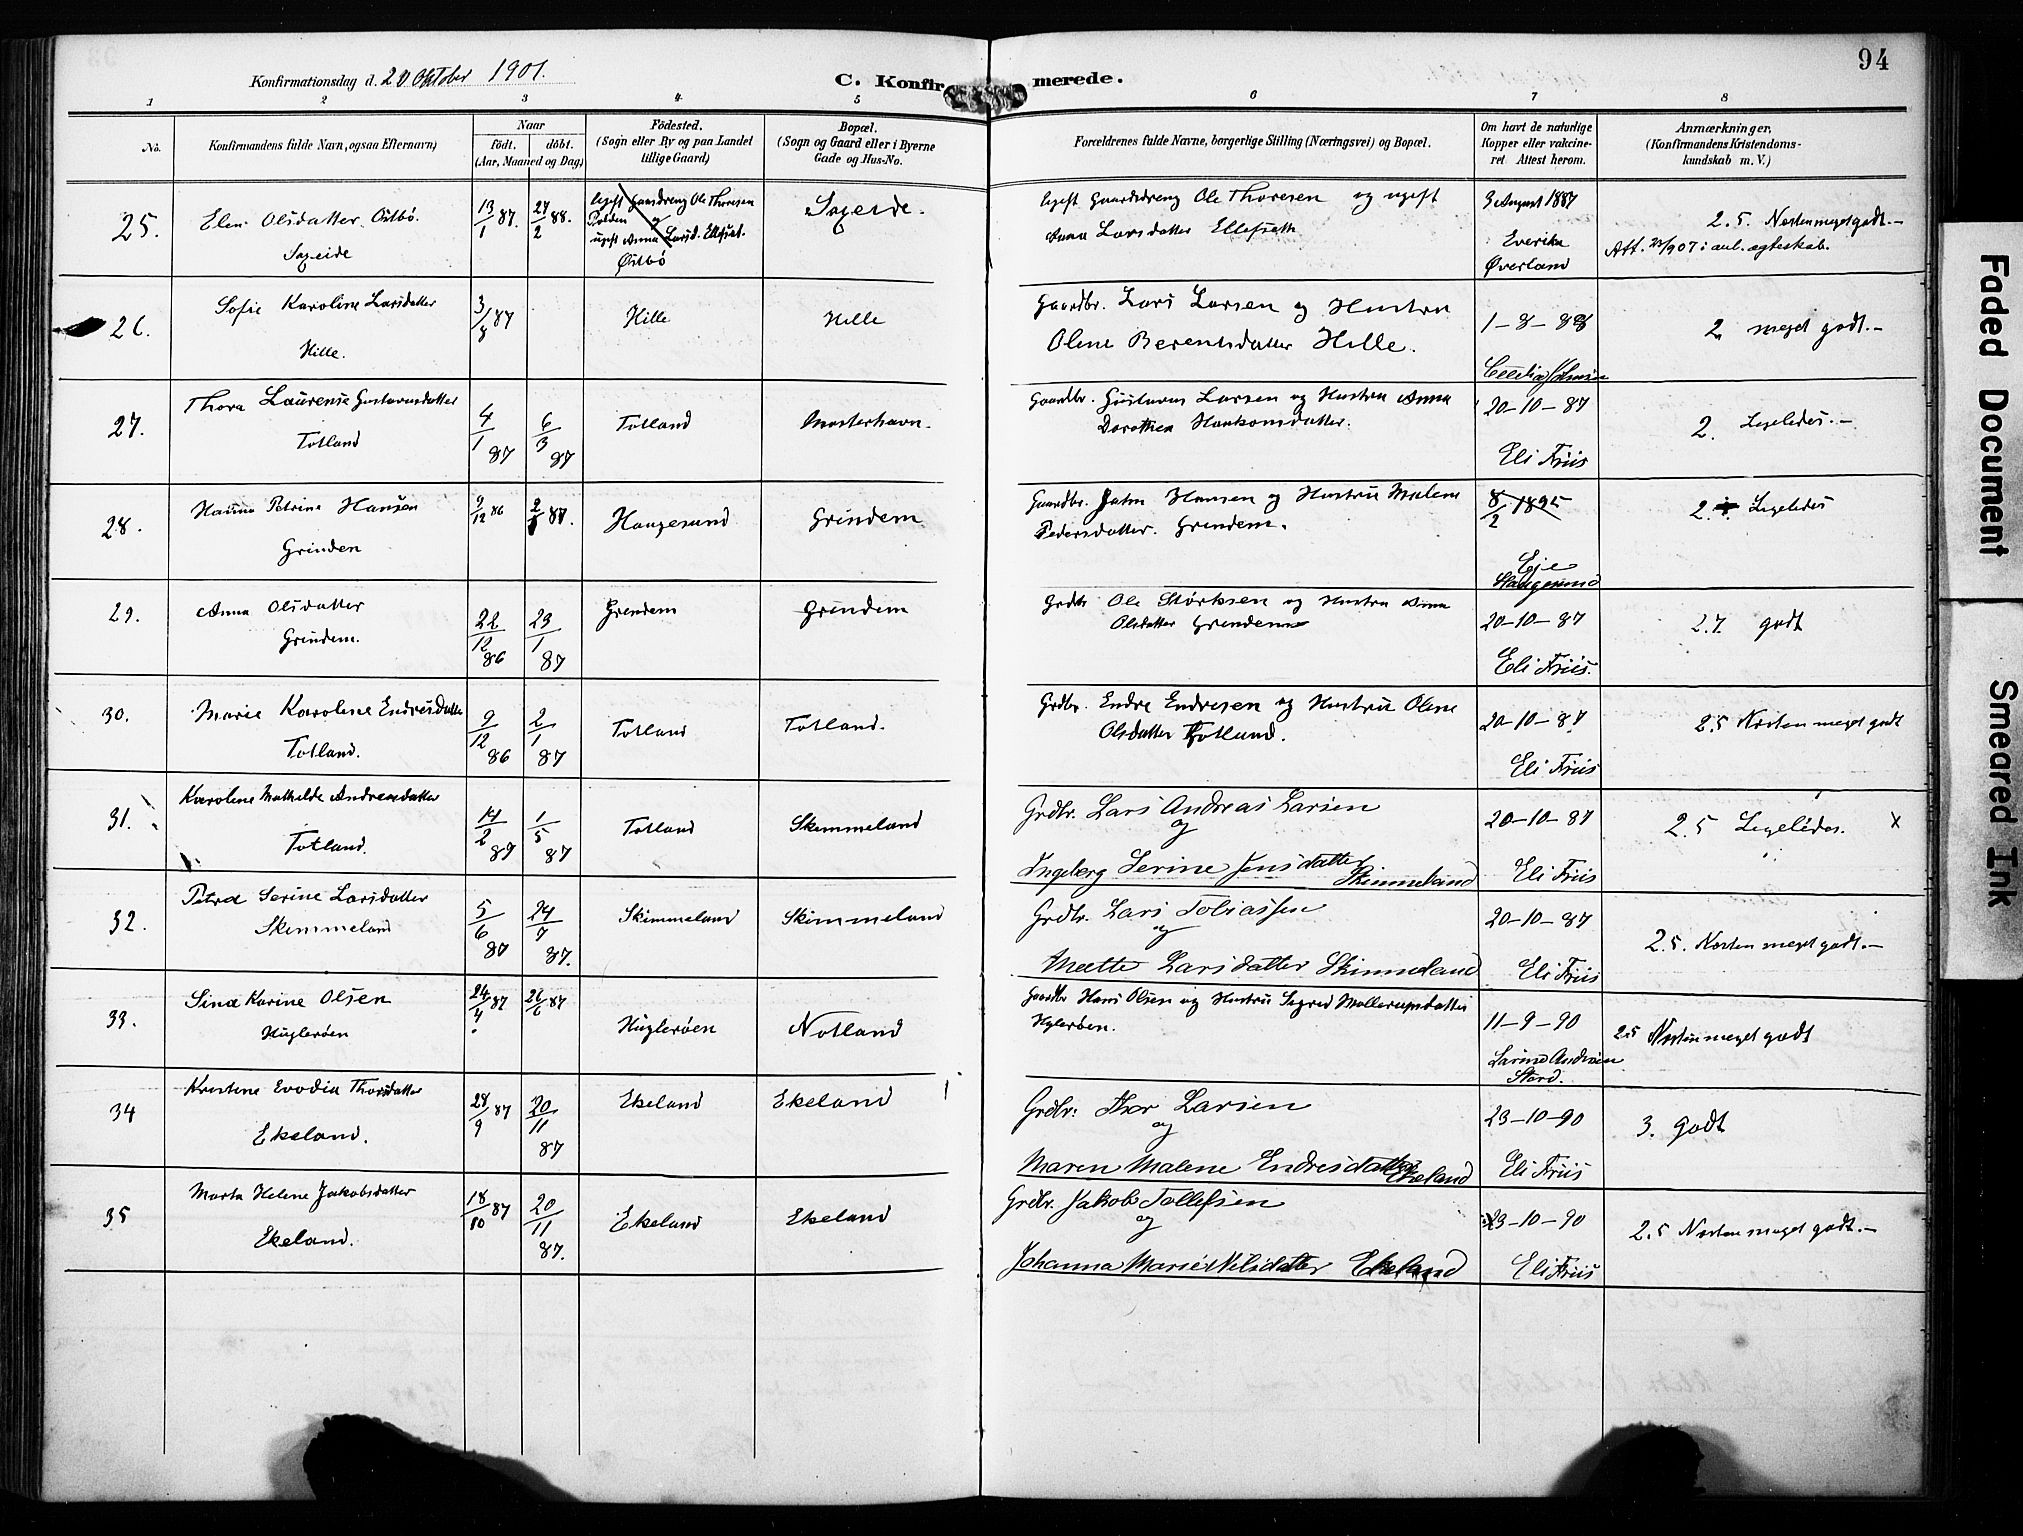 94
Konfirmationsdag d. 20 Oktober 1901.
C. Konfirmerede.
1 2 3 4 5 6 7 8
No.
Konfirmandens fulde Navn, ogsaa Efternavn)
Naar
födt. döbt.
(Aar, Maaned og Dag)
Födested.
(Sogn eller By og paa Landet
tillige Gaard)
Bopæl.
(Sogn og Gaard eller i Byerne
Gade og Hus-No.
Forældrenes fulde Navne, borgerlige Stilling (Næringsvei) og Bopæl.
Om havt de naturlige
Kopper eller vakcine-
ret Attest herom.
Anmærkninger,
(Konfirmandens Kristendoms-
kundskab m. V.)
25. Elen Olsdatter Östbö.
Sageide
13/1 87. 27/2 88.
ugift Gaardsdreng Ole Thoresen
og
ugift Anna Larsd. Ellefsæt.
Östbö
Sageide.
Ugift Gaardsdreng Ole Thoresen og ugift
Anna Larsdatter Ellefsæth
3 August 1887
Everika
Øverland
2.5. Næsten meget godt.—
Att. 23/9 07 i anl. ægteskab.
26. Sofie Karoline Larsdatter
Hille.
3/8 87
Hille
Hille
Gaardbr. Lars Larsen og Hustru
Olene Berentsdatter Hille.
1-8-88
2 meget godt.—
27. Thora Laurense Gustavusdatter
Totland
4/1 87 6/3 87
Totland
Mosterhavn.
Gaardbr. Gustavus Larsen og Hustru Anna
Dorothea Haakonsdatter.
20-10-87
Eli Friis
2. Ligeledes.—
28. Hanna Petrine Hansen
Grinden
9/12 86 2/1 87.
Haugesund
Grindem
Gaardbr. John Hansen og Hustru Malene
Pedersdatter. Grindem.
8/2 1895
Eje
Haugesund
2. Ligeledes
29. Anna Olsdatter
Grindem.
22/12 86 23/1 87
Grindem
Grindem
Grdbr Ole Störksen og Hustru Anna
Olsdatter Grindem
20-10-87
Eli Friis.
2.7. godt
30. Marie Karoline Endresdatter
Totland.
9/12 86 2/1 87
Totland
Totland.
Grdbr. Endre Endresen og Hustru Olene
Olsdatter Totland.
20-10-87
Eli Friis
2.5 Næsten meget godt
31. Karoline Mathilde Andreasdatter
Totland.
14/2 87 1/5 87
Totland
Skimmeland
Grdbr. Lars Andreas Larsen
og
Ingeborg Serine Jensdatter
Skimmeland
20-10-87
Eli Friis
2.5 Ligeledes. X
32. Petra Serine Larsdatter
Skimmeland
5/6 87 24/7 87.
Skimmeland
Skimmeland
Grdbr. Lars Tobiassen
og
Mette Larsdatter Skimmeland
20-10-87
Eli Friis
2.5. Næsten meget godt.—
33. Sina Karine Olsen
Huglerøen
24/4 87 26/6 87
Huglerøen
Notland
Gaardbr Hans Olsen og Hustru Sigrid Mallerupsdatter
Hglerøen.
11-9-90
Larine Andersen
Stord.
2.5 Næsten meget godt
34 Kristine Evodia Thorsdatter
Ekeland.
28/9 87 20/11 87
Ekeland
Ekeland
Grdbr: Thor Larsen
og
Maren Malene Endresdatter
Ekeland
23-10-90
Eli Friis
3. godt
35 Marta Helene Jakobsdatter
Ekeland.
18/10 87 20/11 87.
Ekeland
Ekeland
Grdbr. Jakob Tollefsen
og
Johanna Marie Nilsdatter Ekeland
23-10-90
Eli Friis
2.5 Næsten meget godt.—
Faded Document
Smeared Ink